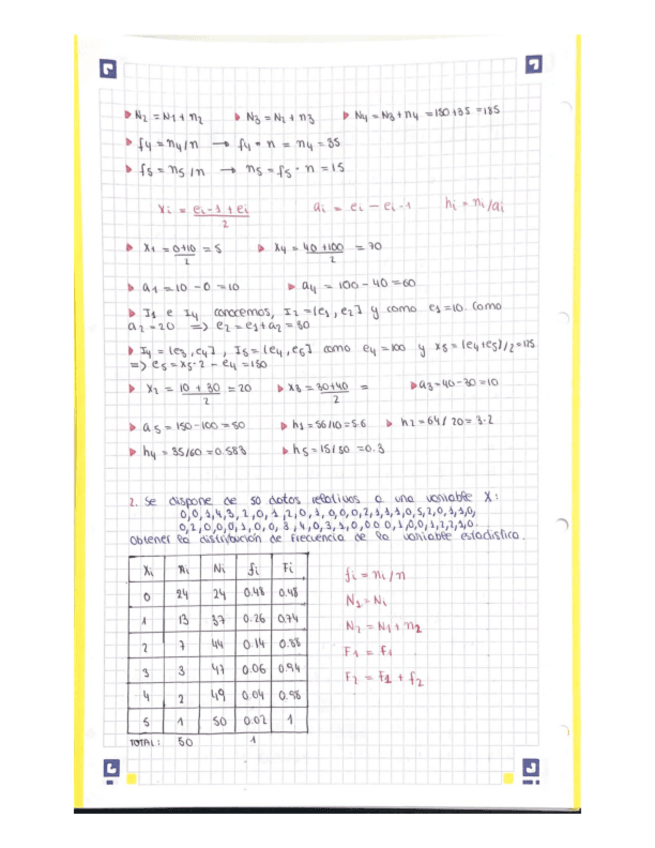 ▶ N2 = N1 + n2 ▶ N3 = N2 + n3 ▶ N4 = N3 + n4 = 150 + 35 = 185
▶ f4 = n4/n → f4 · n = n4 = 35
▶ f5 = n5/n → n5 = f5 · n = 15
xi = (ei-1 + ei)/2 ai = ei - ei-1 hi = ni/ai
▶ x1 = (0+10)/2 = 5 ▶ x4 = (40+100)/2 = 70
▶ a1 = 10 - 0 = 10 ▶ a4 = 100 - 40 = 60
▶ I1 e I4 conocemos, I2 = [e1, e2] y como e1 = 10. Como
a2 = 20 => e2 = e1 + a2 = 30
▶ I4 = [e3, e4], I5 = [e4, e5] como e4 = 100 y x5 = (e4+e5)/2 = 125
=> e5 = x5·2 - e4 = 150
▶ x2 = (10 + 30)/2 = 20 ▶ x3 = (30+40)/2 = ▶ a3 = 40 - 30 = 10
▶ a5 = 150 - 100 = 50 ▶ h1 = 56/10 = 5.6 ▶ h2 = 64/20 = 3.2
▶ h4 = 35/60 = 0.583 ▶ h5 = 15/50 = 0.3
2. Se dispone de 50 datos relativos a una variable X:
Obtener la distribución de frecuencia de la variable estadística.
xi ni Ni fi Fi
0 24 24 0.48 0.48
1 13 37 0.26 0.74
2 7 44 0.14 0.88
3 3 47 0.06 0.94
4 2 49 0.04 0.98
5 1 50 0.02 1
TOTAL: 50 1
fi = ni/n
N2 = N1 + n2
F1 = f1
F2 = F1 + f2